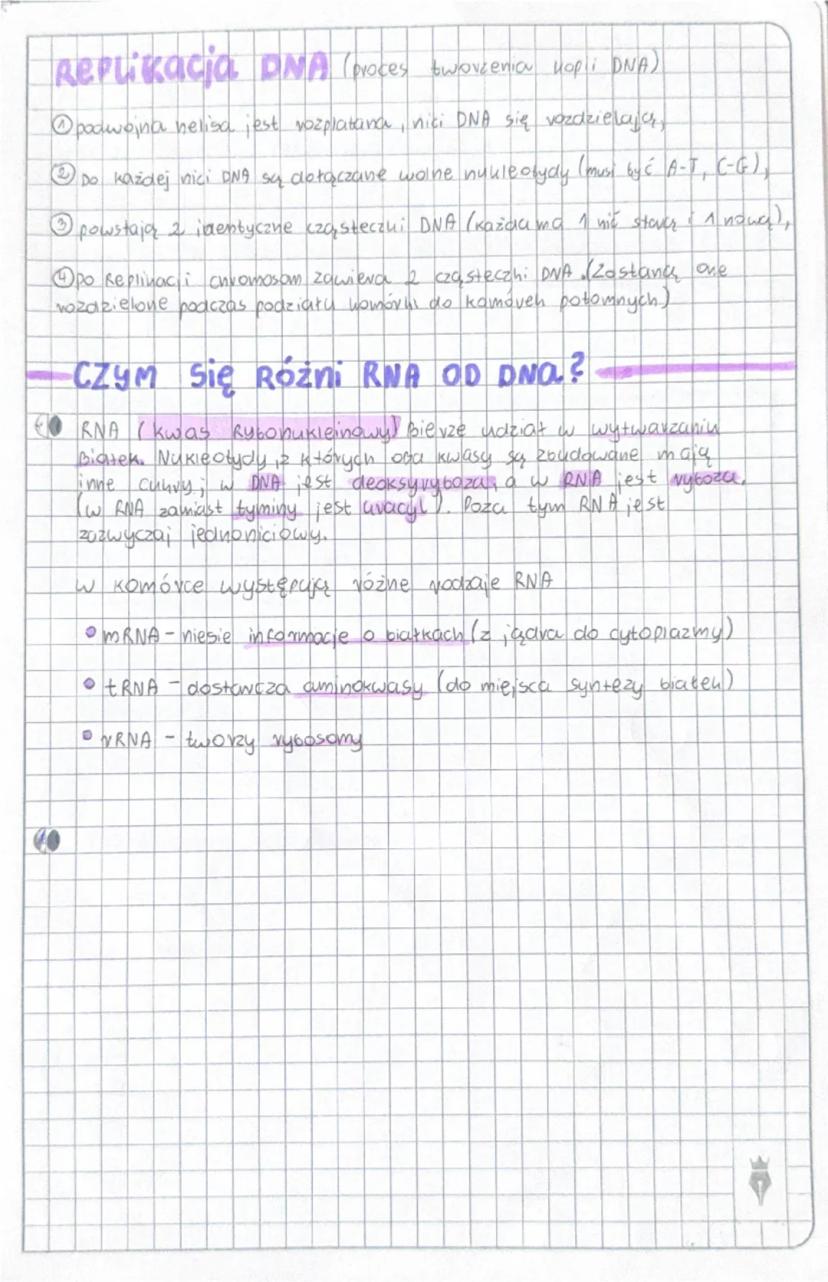 REPLIKACJA DNA (proces tworzenia kopii DNA)
① podwójna helisa jest rozplatana, nici DNA się rozdzielają,
② Do każdej nici DNA są dołączane wolne nukleotydy (musi być A-T, C-G),
③ powstają 2 identyczne cząsteczki DNA (każda ma 1 nić starą i 1 nową),
④ po Replikacji chromosom zawiera 2 cząsteczki DNA. (Zostaną one
rozdzielone podczas podziału komórki do komórek potomnych)
CZYM Się RÓŻNI RNA OD DNA?
RNA (kwas Rybonukleinowy) Bierze udział w wytwarzaniu
Białek. Nukleotydy, z których oba kwasy są zbudowane mają
inne cukry; w DNA jest deoksyryboza, a w RNA jest ryboza.
(w RNA zamiast tyminy jest uracyl). Poza tym RNA jest
zazwyczaj jednoniciowy.
W komórce występują różne rodzaje RNA
• mRNA - niesie informacje o białkach (z jądra do cytoplazmy)
• tRNA - dostarcza aminokwasy (do miejsca syntezy białek)
• rRNA - tworzy rybosomy